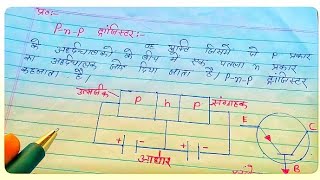 प्रश्न:-
P-n-P ट्रांजिस्टर:- यह युक्ति जिसमें दो P प्रकार
के अर्द्धचालकों के बीच में एक पतला n प्रकार
का अर्द्धचालक जोड़ दिया जाता है। P-n-P ट्रांजिस्टर
कहलाता है।
उत्सर्जक
P n P
संग्राहक
E
C
+ - + -
आधार
B